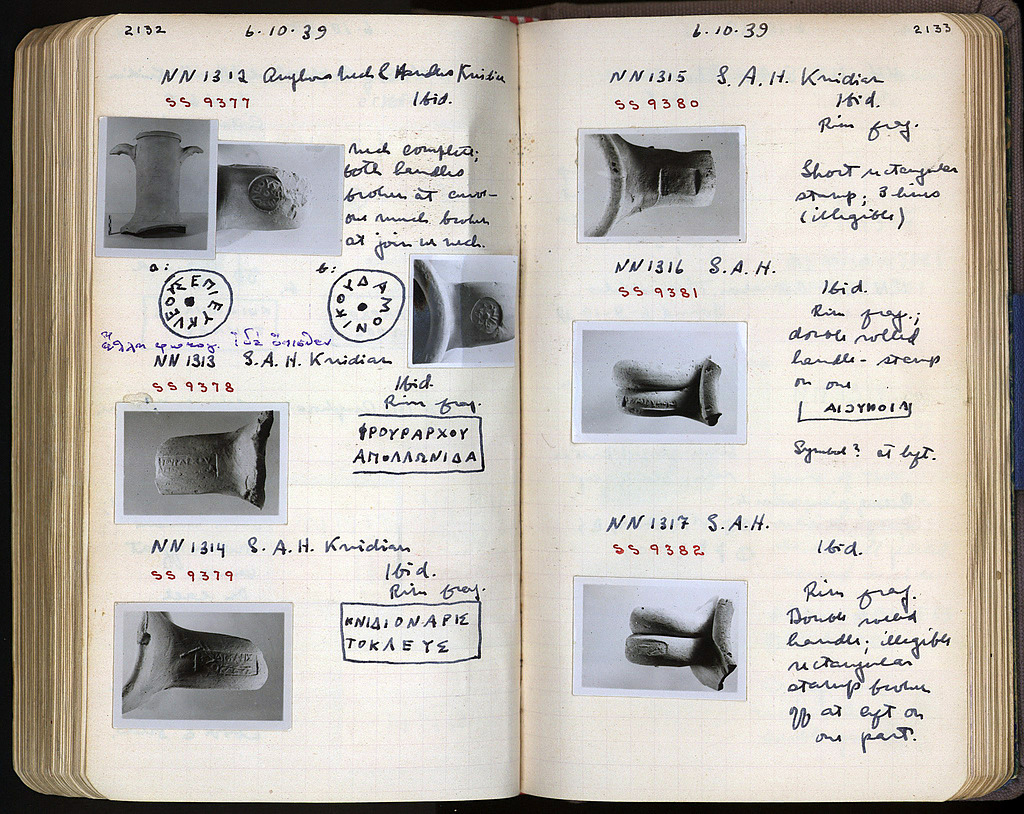 2132
6.10.39
NN 1312 Amphora neck & Handles Knidian
SS 9377
Ibid.
neck complete;
both handles
broken at curve-
one much broken
at join w neck.
a:
ΕΠΙΕΥΚΛΕΟΥΣ
b:
ΔΑΜΟΝΙΚΟΥ
Ἄλλη φωτογ. ἰδὲ ὄπισθεν
NN 1313 S.A.H. Knidian
SS 9378
Ibid.
Rim frag.
ΦΡΟΥΡΑΡΧΟΥ
ΑΠΟΛΛΩΝΙΔΑ
NN 1314 S.A.H. Knidian
SS 9379
Ibid.
Rim frag.
ΚΝΙΔΙΟΝΑΡΙΣ
ΤΟΚΛΕΥΣ
2133
6.10.39
NN 1315 S.A.H. Knidian
SS 9380
Ibid.
Rim frag.
Short rectangular
stamp; 3 lines
(illegible)
NN 1316 S.A.H.
SS 9381
Ibid.
Rim frag.;
double rolled
handle - stamp
on one
Symbol? at left.
NN 1317 S.A.H.
SS 9382
Ibid.
Rim frag.
Double rolled
handle; illegible
rectangular
stamp broken
off at left on
one part.